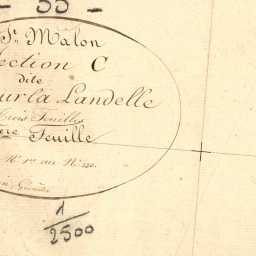 - 55 -
St Malon
ection C
dite
ur la Landelle
trois Feuilles
ere Feuille
N° 1er au N°
1
2500